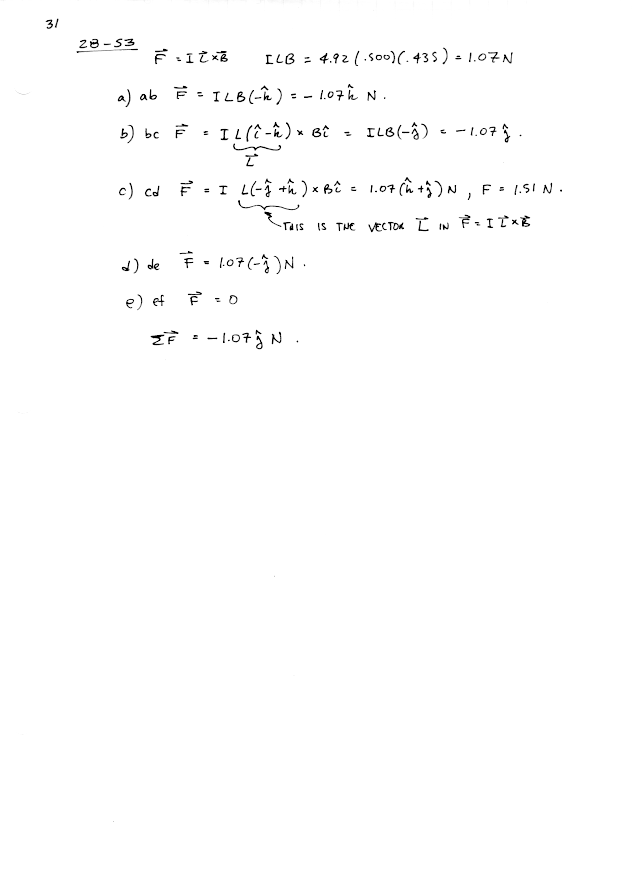 31
28-53
F⃗ = I L⃗ × B⃗   ILB = 4.92 (.500)(.435) = 1.07 N
a) ab F⃗ = ILB(-k̂) = - 1.07 k̂ N.
b) bc F⃗ = I L(î - k̂) × Bî = ILB(-ĵ) = -1.07 ĵ.
L⃗
c) cd F⃗ = I L(-ĵ + k̂) × Bî = 1.07 (k̂ + ĵ) N, F = 1.51 N.
THIS IS THE VECTOR L⃗ IN F⃗ = I L⃗ × B⃗
d) de F⃗ = 1.07 (-ĵ) N.
e) ef F⃗ = 0
ΣF⃗ = -1.07 ĵ N.